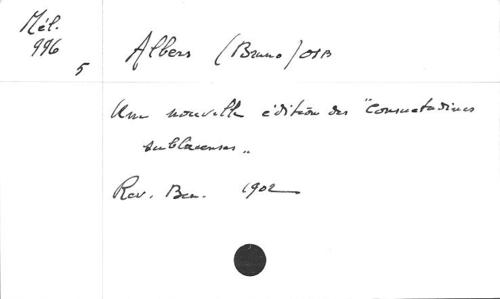 Mél.
996
5
Albers (Bruno) OSB
Une nouvelle édition des "Consuetudines
sublacenses"
Rev. Ben. 1902